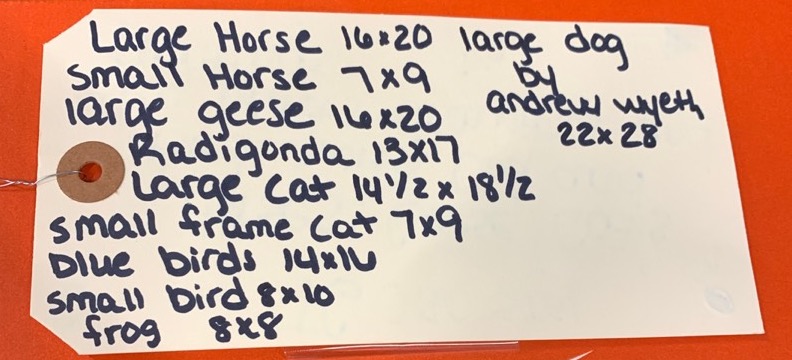 Large Horse 16x20
small Horse 7x9
large geese 16x20
Radigonda 13x17
Large Cat 14 1/2 x 18 1/2
small frame Cat 7x9
blue birds 14x16
small bird 8x10
frog 8x8
large dog
by
andrew wyeth
22x28